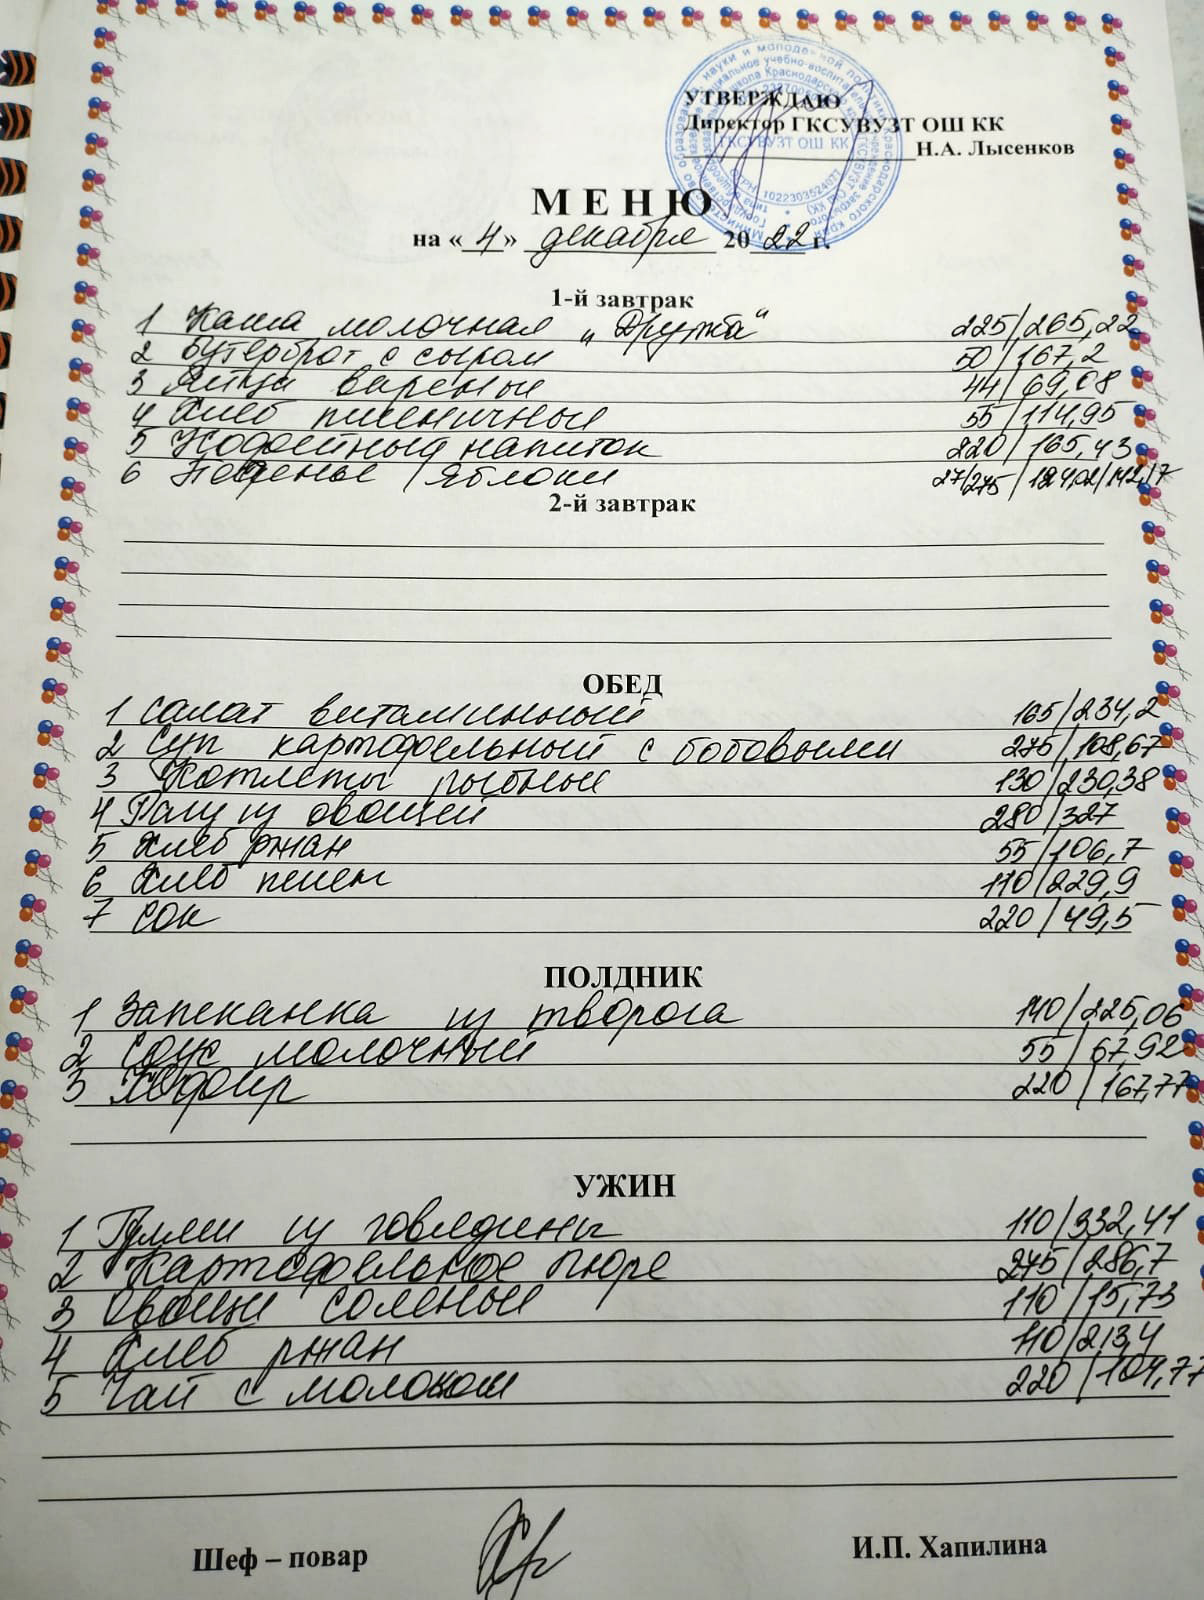 УТВЕРЖДАЮ
Директор ГКСУВУЗТ ОШ КК
Н.А. Лысенков
ГКСУВУЗТ ОШ КК
ОГРН 1022303524077
МЕНЮ
на «4» декабря 2022 г.
1-й завтрак
1 Каша молочная „Дружба“ 225/265,22
2 Бутерброт с сыром 50/167,2
3 Яйца вареные 44/69,08
4 Хлеб пшеничный 55/114,95
5 Кофейный напиток 220/165,43
6 Печенье/Яблоки 27/275/124,02/142,17
2-й завтрак
ОБЕД
1 Салат витаминный 165/234,2
2 Суп картофельный с бобовыми 275/108,67
3 Котлеты рыбные 130/230,38
4 Рагу из овощей 280/327
5 Хлеб ржан 55/106,7
6 Хлеб пшен 110/229,9
7 Сок 220/49,5
ПОЛДНИК
1 Запеканка из творога 140/225,06
2 Соус молочный 55/67,92
3 Кефир 220/167,77
УЖИН
1 Гуляш из говядины 110/332,41
2 Картофельное пюре 275/286,7
3 Овощи соленые 110/15,73
4 Хлеб ржан 110/213,4
5 Чай с молоком 220/104,77
Шеф – повар И.П. Хапилина